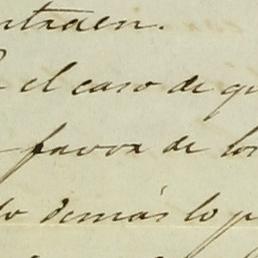 ntraen.
el caso de qu
favor de los
lo demás lo p